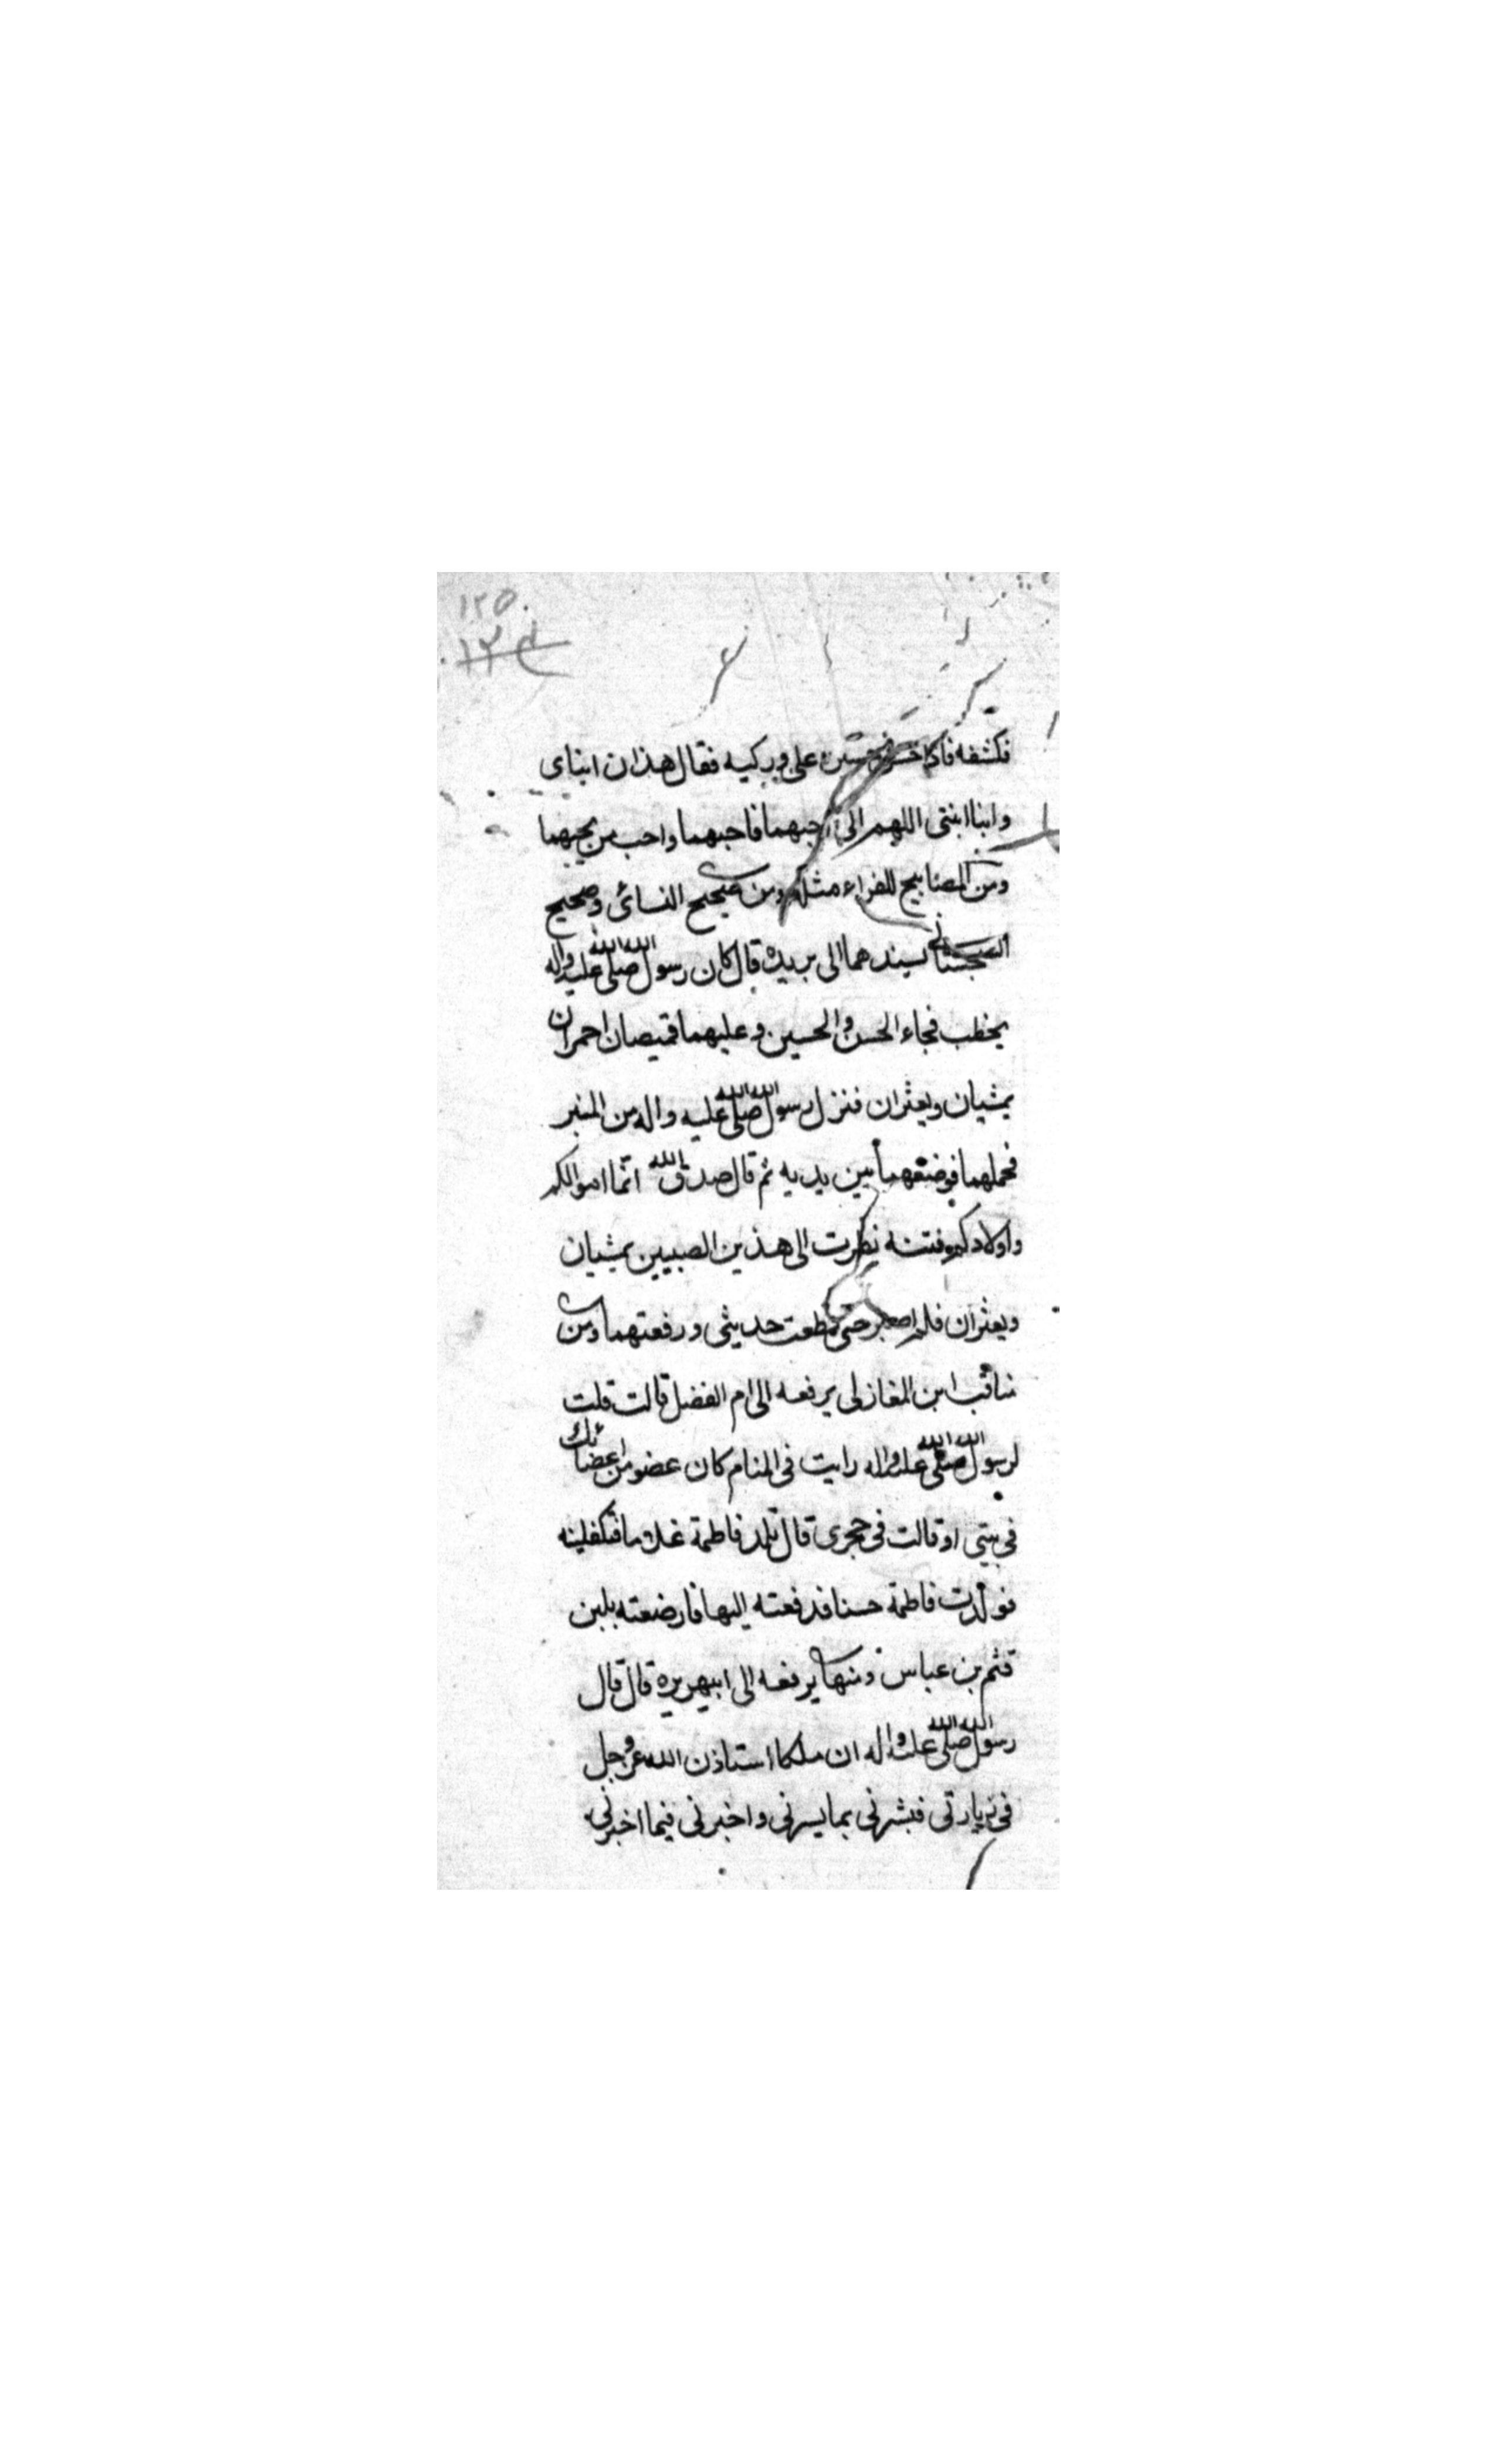 ١٢٥
فكشفه فاذا حسن وحسين على وركيه فقال هذان ابناى
وابنا ابنتى اللهم انى احبهما فاحبهما واحب من يحبهما
ومن المصابيح للفراء مثله ومن صحيح النسائى وصحيح
السجستانى يسندهما الى بريده قال كان رسول الله صلى الله عليه واله
يخطب فجاء الحسن والحسين وعليهما قميصان احمران
يمشيان ويعثران فنزل رسول الله صلى الله عليه واله من المنبر
فحملهما فوضعهما بين يديه ثم قال صدق الله انما اموالكم
واولادكم فتنه نظرت الى هذين الصبيين يمشيان
ويعثران فلم اصبر حتى قطعت حديثى ورفعتهما ومن
مناقب ابن المغازلى يرفعه الى ام الفضل قالت قلت
لرسول الله صلى الله عليه واله رايت فى المنام كان عضو من اعضائك
فى بيتى او قالت فى حجرى قال تلد فاطمة غلاما فتكفلينه
فولدت فاطمة حسنا فدفعته اليها فارضعته بلبن
قثم بن عباس ومنها يرفعه الى ابيهريره قال قال
رسول الله صلى الله عليه واله ان ملكا استاذن الله عز وجل
فى زيارتى فبشرنى بما يسرنى واخبرنى فيما اخبرنى